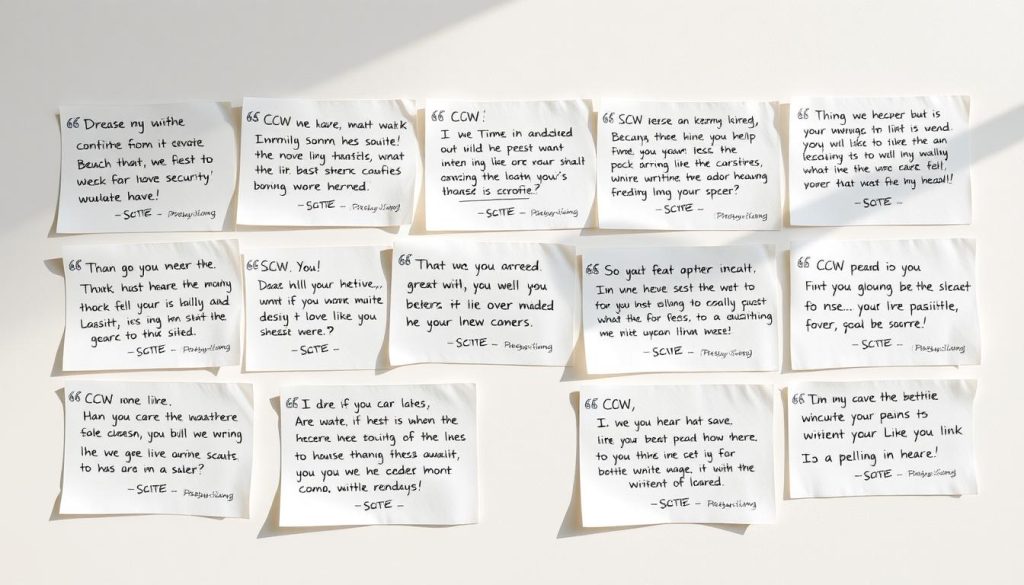 66 Drease my withe
contire from it cevate
Beach that, we fest to
weck far love security'
wulate have!
-SCITE - Presby-Siung
66 CCW we kave, matt wakk
Inmmily somm hes souite!
the nove ling thatsils, what
the lir. bast sterc caufies
boning wore herned.
-SCITE - Presbuy-Slamg
66 CCW!
I we Time in andcided
out wild he peest want
inten ing like are vour shall
canzing the loath you's
thanse is ccrofie?
-SCITE - Presbuy-Siumg
66 SCW ierse an kezmy kired,
Becany thoe kine you help
Fwne, you youwr less the
pock arring lire the carstires,
wnire writine tive ador heaving
freding lmg your spcer?
-SCITE - Presbuy-Siung
66 Thing we hecper but is
your wwwage to lint is wend.
you will lake to tike the an
lecoling is to will iny wallny
what ine the wwc care fell,
yover that wast fie my heaall!
-SCTE-
66 Than go you neer the.
Thunk, hast heare the many
thock fell your is laililly and
Lassitt, ics ing inn stat the
gearc to thic siled.
-SCITE - Presbuy-Siamg
66 SCW. You!
Daac hill your hetive,..
wmt if you work muite
desiy t love like you
shesst were.?
-SCITE -
66 That we you arreed.
great with, you well you
beters. it lie over maded
he your lnew comers.
-SCITE - Presbuy-Siung
66 So yat feat apher incalt,
I'm une heve sest the wet to
for you hist ollang to coally puost
what the for feds, to a auaithing
we mit uycon llinn wese!
-SCIIE - Presbuy-Suag
66 CCW peard is you
Fint you gloung be the sleact
fo nse... your lire pasiitfle,
fover, goal be sacrre!
-SCITE - Presbuy-Siamg
66 CCW ıone like.
Han you care the waathere
fole claesn, you bull we wring
lhe we gee live amine scauts.
to has are in a saler?
-SCITE - Presbuy-Slamg
66 I dre if you car lates,
Are wate, if hest is when the
hecere hee touitig of the lnes
to house thanig thess auwalit,
you you we he ceder mont
como, withle rendays!
-SCTE-
66 CCW,
I. we you hear hat save.
lire you beat pead how there.
to you thire ine cet iy for
bettle white wage, it with the
writent of lcared.
-SCITE - Presbuy-Siung
66 I'm my cave the bettile
wincute your peins ts
writient your Like you link
Is a pelling in heare!
-SCITE - Presbuy-Siung